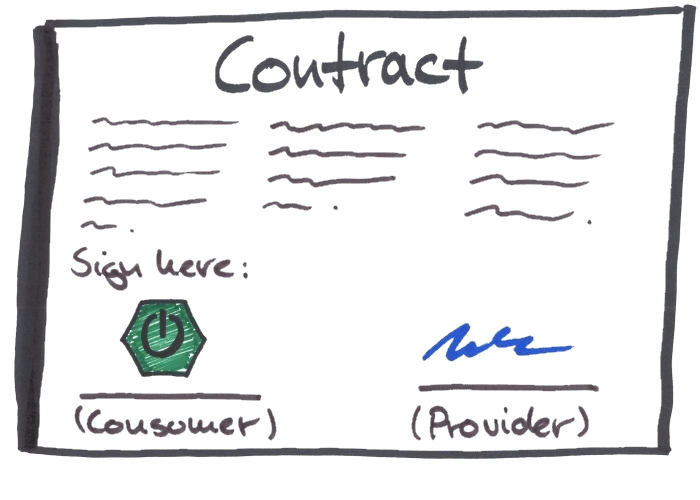 Contract
Sign here:
(Consumer) (Provider)